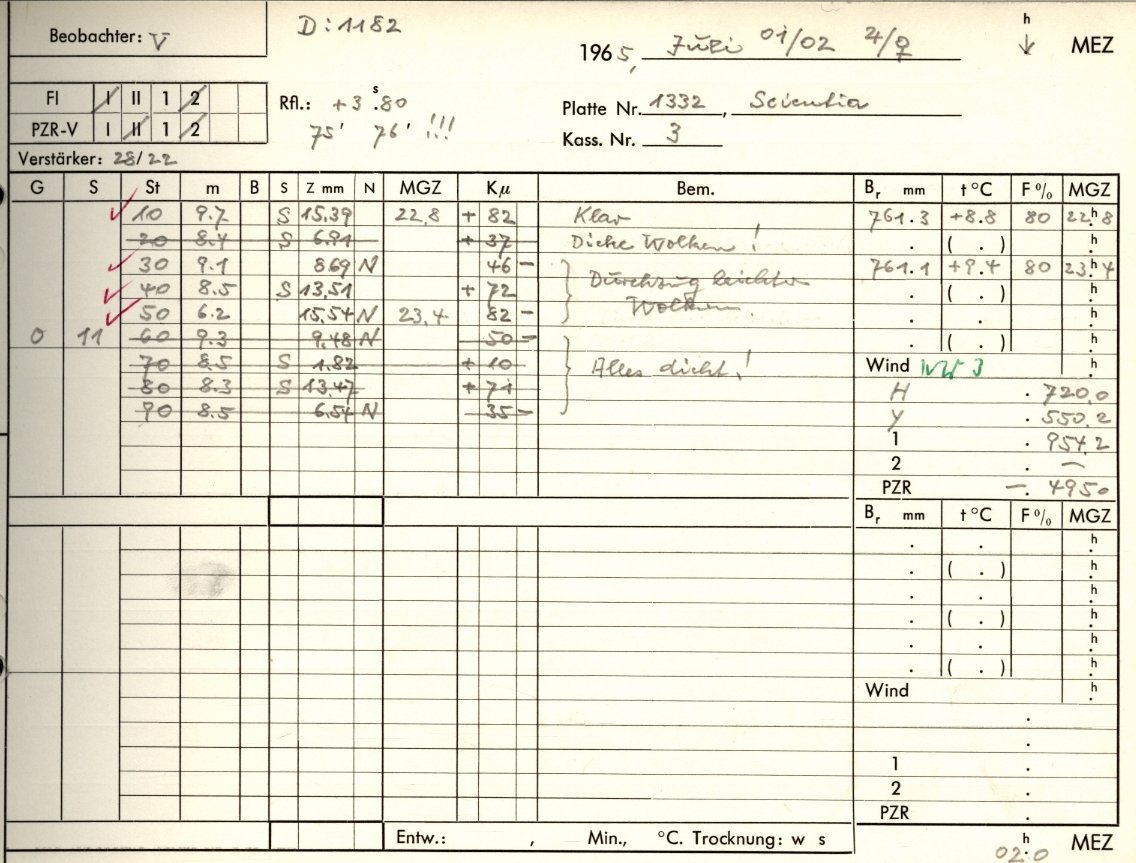 Beobachter: V
D: 1182
h
1965, Juli 01/02 ♃/♀ MEZ
FI I II 1 2
PZR-V I II 1 2
Rfl.: +3 s.80
75' 76' !!!
Platte Nr. 1332, Scientia
Kass. Nr. 3
Verstärker: 28/22
G S St m B S Z mm N MGZ Kμ Bem. Br mm t °C F % MGZ
10 9.7 S 15.39 22,8 + 82 Klar 761.3 +8.8 80 22h8
20 8.4 S 6.91 + 37 Dicke Wolken! . ( . ) h
30 9.1 8.69 N 46 - Durchzug leichter 761.1 +9.4 80 23h4
40 8.5 S 13.51 + 72 Wolken. . ( . ) h
50 6.2 15.54 N 23,4 82 - . . h
0 11 60 9.3 9.48 N 50 - . ( . ) h
70 8.5 S 1.82 + 10 Alles dicht! Wind NW 3 h
80 8.3 S 13.47 + 71 H . 720,0
90 8.5 6.54 N 35 - Y . 550,2
1 . 954,2
2 . —
PZR —. 4950
Br mm t °C F % MGZ
. . h
. ( . ) h
. . h
. ( . ) h
. . h
. ( . ) h
Wind h
.
.
1 .
2 .
PZR .
Entw.: , Min., °C. Trocknung: w s
02h.0 MEZ